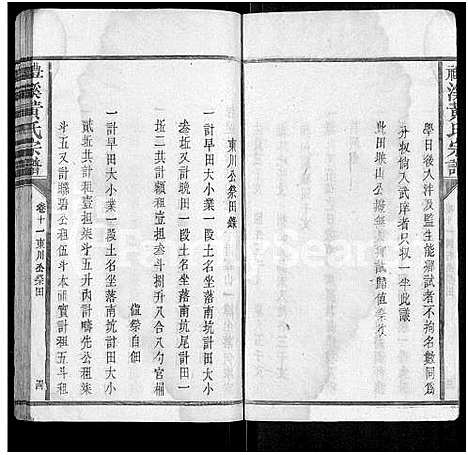 禮溪黃氏宗譜
學日後入泮及監生能鄉試者不拘名數同爲
分收倘入武庠者只收一半此議
此田縣山公 歸值祭收
東川公祭田錄
一計早田大小業一段土名坐落南坑計田大小
叁坵共計 晚田一段坐落南坑尾計田一
坵二共計額租叁斗捌升八合八勺官桶
值祭自佃
一計早田大小業一段土名坐落南坑計田大小
貳坵共計租壹担柒斗五升內計疇先公租柒
斗五又計縣碧公租伍斗本 實計租五斗租
禮溪黃氏宗譜
卷十一 東川公祭田